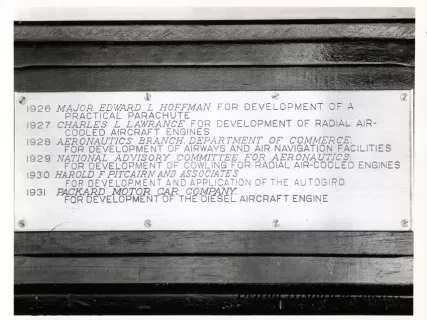 1926 MAJOR EDWARD L HOFFMAN FOR DEVELOPMENT OF A
PRACTICAL PARACHUTE
1927 CHARLES L LAWRANCE FOR DEVELOPMENT OF RADIAL AIR-
COOLED AIRCRAFT ENGINES
1928 AERONAUTICS BRANCH, DEPARTMENT OF COMMERCE,
FOR DEVELOPMENT OF AIRWAYS AND AIR NAVIGATION FACILITIES
1929 NATIONAL ADVISORY COMMITTEE FOR AERONAUTICS,
FOR DEVELOPMENT OF COWLING FOR RADIAL AIR-COOLED ENGINES
1930 HAROLD F PITCAIRN AND ASSOCIATES
FOR DEVELOPMENT AND APPLICATION OF THE AUTOGIRO
1931 PACKARD MOTOR CAR COMPANY
FOR DEVELOPMENT OF THE DIESEL AIRCRAFT ENGINE